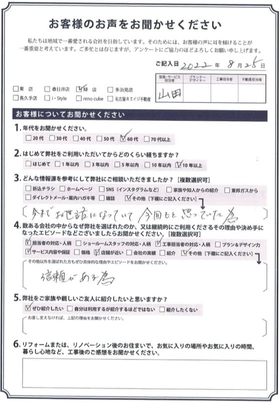 お客様のお声をお聞かせください
私たちは地域で一番愛される会社を目指しています。そのためには、お客様の声に耳を傾けることが
一番重要と考えています。ご多忙とは存じますが、アンケートにご協力のほどよろしくお願い申し上げます。
ご記入日 2022年 8月25日
山田
お客様についてお聞かせください
1. 年代をお聞かせください。
20代 30代 40代 50代 60代 70代以上
2. はじめて弊社をご利用いただいてからどのくらい経ちますか?
はじめて 1年以内 3年以内 5年以内 10年以内 10年以上
3. どんな情報源を参考にして弊社にご相談いただきましたか?【複数選択可】
折込チラシ ホームページ SNS(インスタグラムなど) ご家族や知人からの紹介 東邦ガスから
ダイレクトメール・案内ハガキ等 雑誌 看板・建物 イベント その他(下記の欄にご記入ください)
4. 数ある会社の中からなぜ弊社を選ばれたのか、又は継続的にご利用くださるその理由や決め手に
なったエピソードなどございましたらお聞かせください。【複数選択可】
担当者の対応・人柄 ショールームスタッフの対応・人柄 工事担当者の対応・人柄 プラン&デザイン力
サービス内容や保証 価格 店舗が近い 会社の実績 紹介 その他(下記の欄にご記入ください)
信頼がある為
5. 弊社をご家族や親しいご友人に紹介したいと思いますか?
ぜひ紹介したい 自分は利用するが紹介するほどではない 紹介したくない
6. リフォームまたは、リノベーション後のお住まいで、お気に入りの場所やお気に入りの時間、
暮らし心地など、工事後のご感想をお聞かせください。